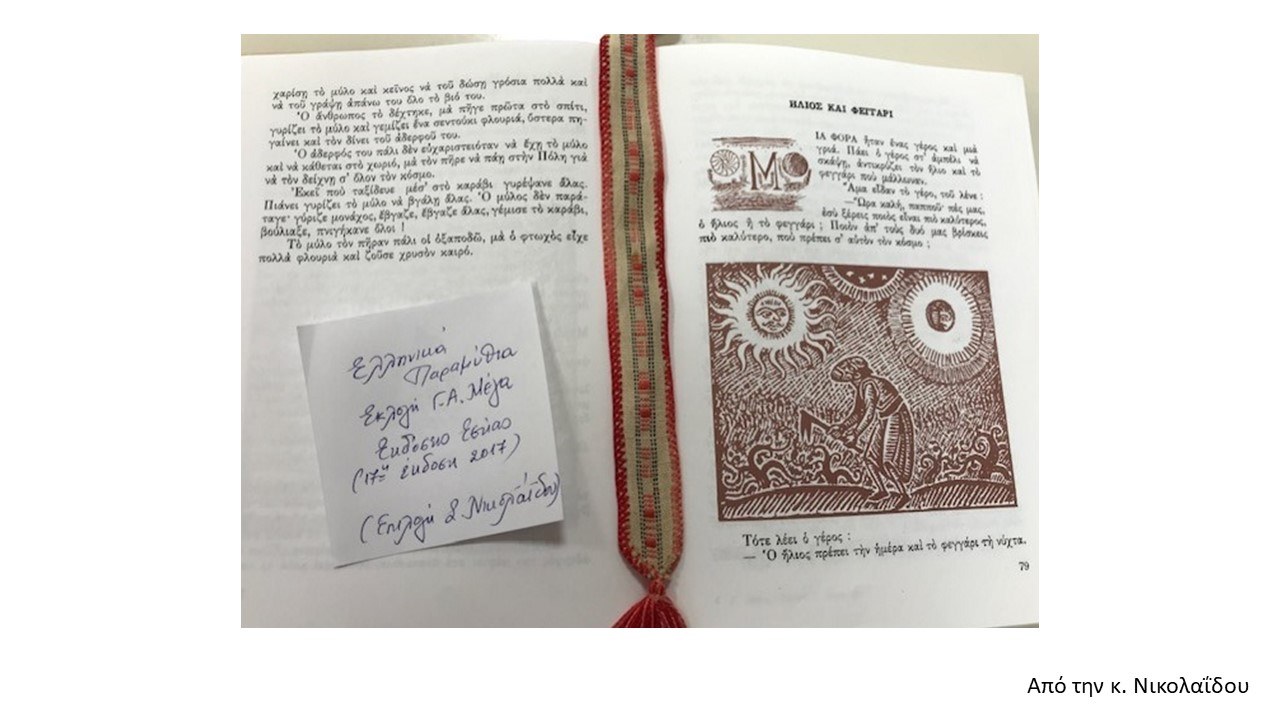 χαρίση τὸ μύλο καὶ κεῖνος νὰ τοῦ δώση γρόσια πολλὰ καὶ
νὰ τοῦ γράψη ἀπάνω του ὅλο τὸ βιό του.
Ὁ ἄνθρωπος τὸ δέχτηκε, μὰ πῆγε πρῶτα στὸ σπίτι,
γυρίζει τὸ μύλο καὶ γεμίζει ἕνα σεντούκι φλουριά, ὕστερα πη-
γαίνει καὶ τὸν δίνει τοῦ ἀδερφοῦ του.
Ὁ ἀδερφός του πάλι δὲν εὐχαριστειόταν νὰ ἔχη τὸ μύλο
καὶ νὰ κάθεται στὸ χωριό, μὰ τὸν πῆρε νὰ πάη στὴν Πόλη γιὰ
νὰ τὸν δείχνη σ' ὅλον τὸν κόσμο.
Ἐκεῖ ποὺ ταξίδευε μέσ' στὸ καράβι γυρέψανε ἅλας.
Πιάνει γυρίζει τὸ μύλο νὰ βγάλη ἅλας. Ὁ μύλος δὲν παρά-
ταγε· γύριζε μονάχος, ἔβγαζε, ἔβγαζε ἅλας, γέμισε τὸ καράβι,
βούλιαξε, πνιγήκανε ὅλοι !
Τὸ μύλο τὸν πῆραν πάλι οἱ ὀξαποδῶ, μὰ ὁ φτωχὸς εἶχε
πολλὰ φλουριὰ καὶ ζοῦσε χρυσὸν καιρό.
Ελληνικά
Παραμύθια
Εκλογή Γ.Α. Μέγα
Εκδόσεις Εστίας
(17η έκδοση 2017)
(Επιλογή Σ. Νικολαΐδου)
ΗΛΙΟΣ ΚΑΙ ΦΕΓΓΑΡΙ
ΜΙΑ ΦΟΡΑ ἦταν ἕνας γέρος καὶ μιὰ
γριά. Πάει ὁ γέρος στ' ἀμπέλι νὰ
σκάψη, ἀντικρύζει τὸν ἥλιο καὶ τὸ
φεγγάρι ποὺ μάλλωναν.
Ἅμα εἶδαν τὸ γέρο, τοῦ λένε :
—Ὥρα καλή, παπποῦ· πές μας,
ἐσὺ ξέρεις ποιὸς εἶναι πιὸ καλύτερος,
ὁ ἥλιος ἢ τὸ φεγγάρι ; Ποιὸν ἀπ' τοὺς δυό μας βρίσκεις
πιὸ καλύτερο, ποὺ πρέπει σ' αὐτὸν τὸν κόσμο ;
Τότε λέει ὁ γέρος :
— Ὁ ἥλιος πρέπει τὴν ἡμέρα καὶ τὸ φεγγάρι τὴ νύχτα.
79
Από την κ. Νικολαΐδου